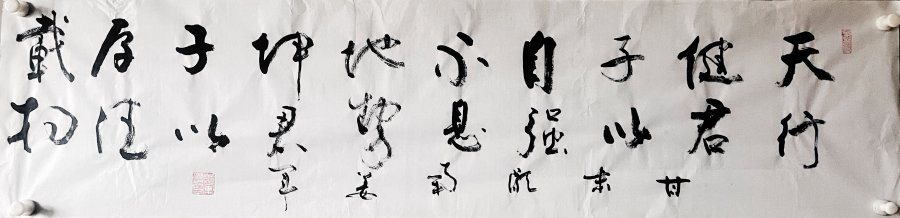 天行
健君
子以
自强
不息
地势
坤君
子以
厚德
載物
甘肃陇南姜军